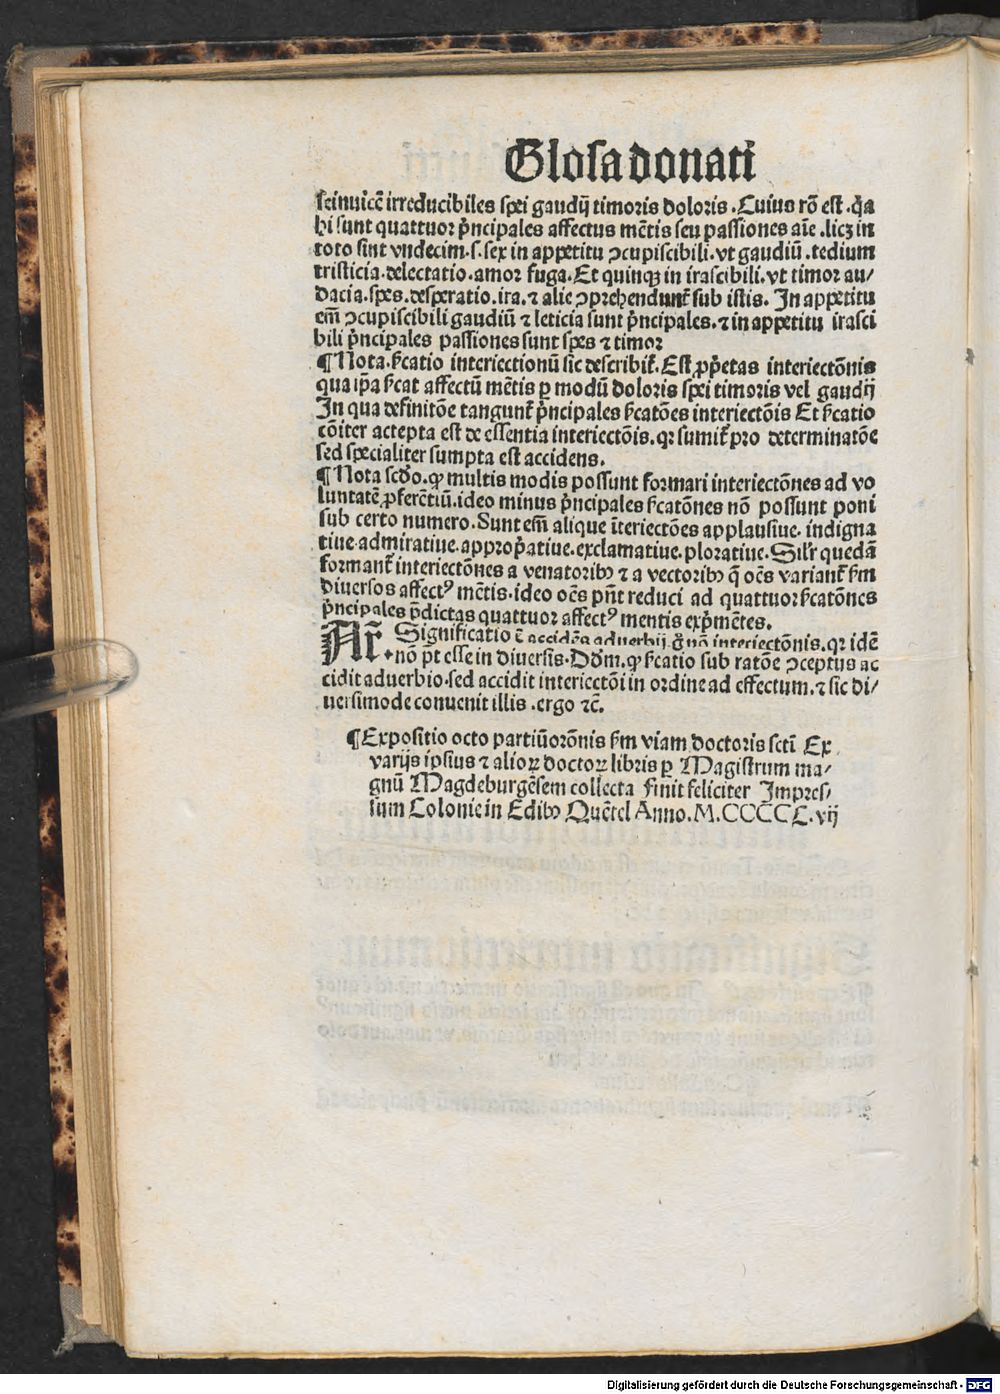 Glosa donati
seinuicē irreducibiles spei gaudij timoris doloris. Cuius rō est. q̇a
hi sunt quattuor p̄ncipales affectus mētis seu passiones aīe. licꝫ in
toto sint vndecim. s. sex in appetitu ↄcupiscibili. vt gaudiū. tedium
tristicia. delectatio. amor fuga. Et quinqꝫ in irascibili. vt timor au/
dacia. spes. desperatio. ira. ⁊ alie ↄprehendunt᷑ sub istis. In appetitu
em̄ ↄcupiscibili gaudiū ⁊ leticia sunt p̄ncipales. ⁊ in appetitu irasci
bili p̄ncipales passiones sunt spes ⁊ timor
¶ Nota. ſcatio interiectionū sic describit᷑. Est ꝓp̄etas interiectōnis
qua ip̄a ſcat affectū mētis ꝑ modū doloris spei timoris vel gaudij
In qua definitōe tangunt᷑ p̄ncipales ſcatōes interiectōis Et ſcatio
cōiter accepta est de essentia interiectōis. qꝛ sumit᷑ pro determinatōe
sed specialiter sumpta est accidens.
¶ Nota scd̄o. ꝙ multis modis possunt formari interiectōnes ad vo
luntatē ꝓferētiū. ideo minus p̄ncipales ſcatōnes nō possunt poni
sub certo numero. Sunt em̄ alique īteriectōes applausiue. indigna
tiue. admiratiue. approp̄atiue. exclamatiue. ploratiue. Sil̄r quedā
formant᷑ interiectōnes a venatoribꝰ ⁊ a vectoribꝰ q̄ oēs variant᷑ ſm
diuersos affectꝰ mētis. ideo oēs pn̄t reduci ad quattuor ſcatōnes
p̄ncipales p̄dictas quattuor affectꝰ mentis exp̄mētes.
Ar᷑. Significatio ē accidēs aduerbij. g̊ nō interiectōnis. qꝛ idē
nō p̄t esse in diuersis. Dd̄m. ꝙ ſcatio sub ratōe ↄceptus ac
cidit aduerbio. sed accidit interiectōi in ordine ad effectum. ⁊ sic di/
uersimode conuenit illis. ergo ⁊c̄.
¶ Expositio octo partiū orōnis ſm viam doctoris sctī Ex
varijs ipsius ⁊ alioꝝ doctoꝝ libris ꝑ Magistrum ma/
gnū Magdeburgēsem collecta finit feliciter Impres/
sum Colonie in Edibꝰ Quētel Anno. M.CCCCC. vij
Digitalisierung gefördert durch die Deutsche Forschungsgemeinschaft - DFG